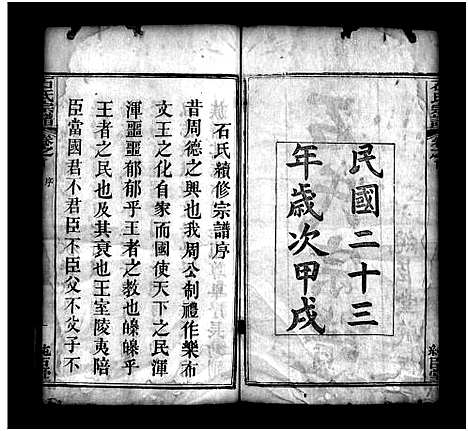 民國二十三
年歲次甲戌
石氏宗譜
石氏續修宗譜序
昔周德之興也我周公制禮作樂布
文王之化自家而國使天下之民渾
渾噩噩郁郁乎王者之教也皞皞乎
王者之民也及其衰也王室陵夷陪
臣當國君不君臣不臣父不父子不
石氏宗譜
序
一